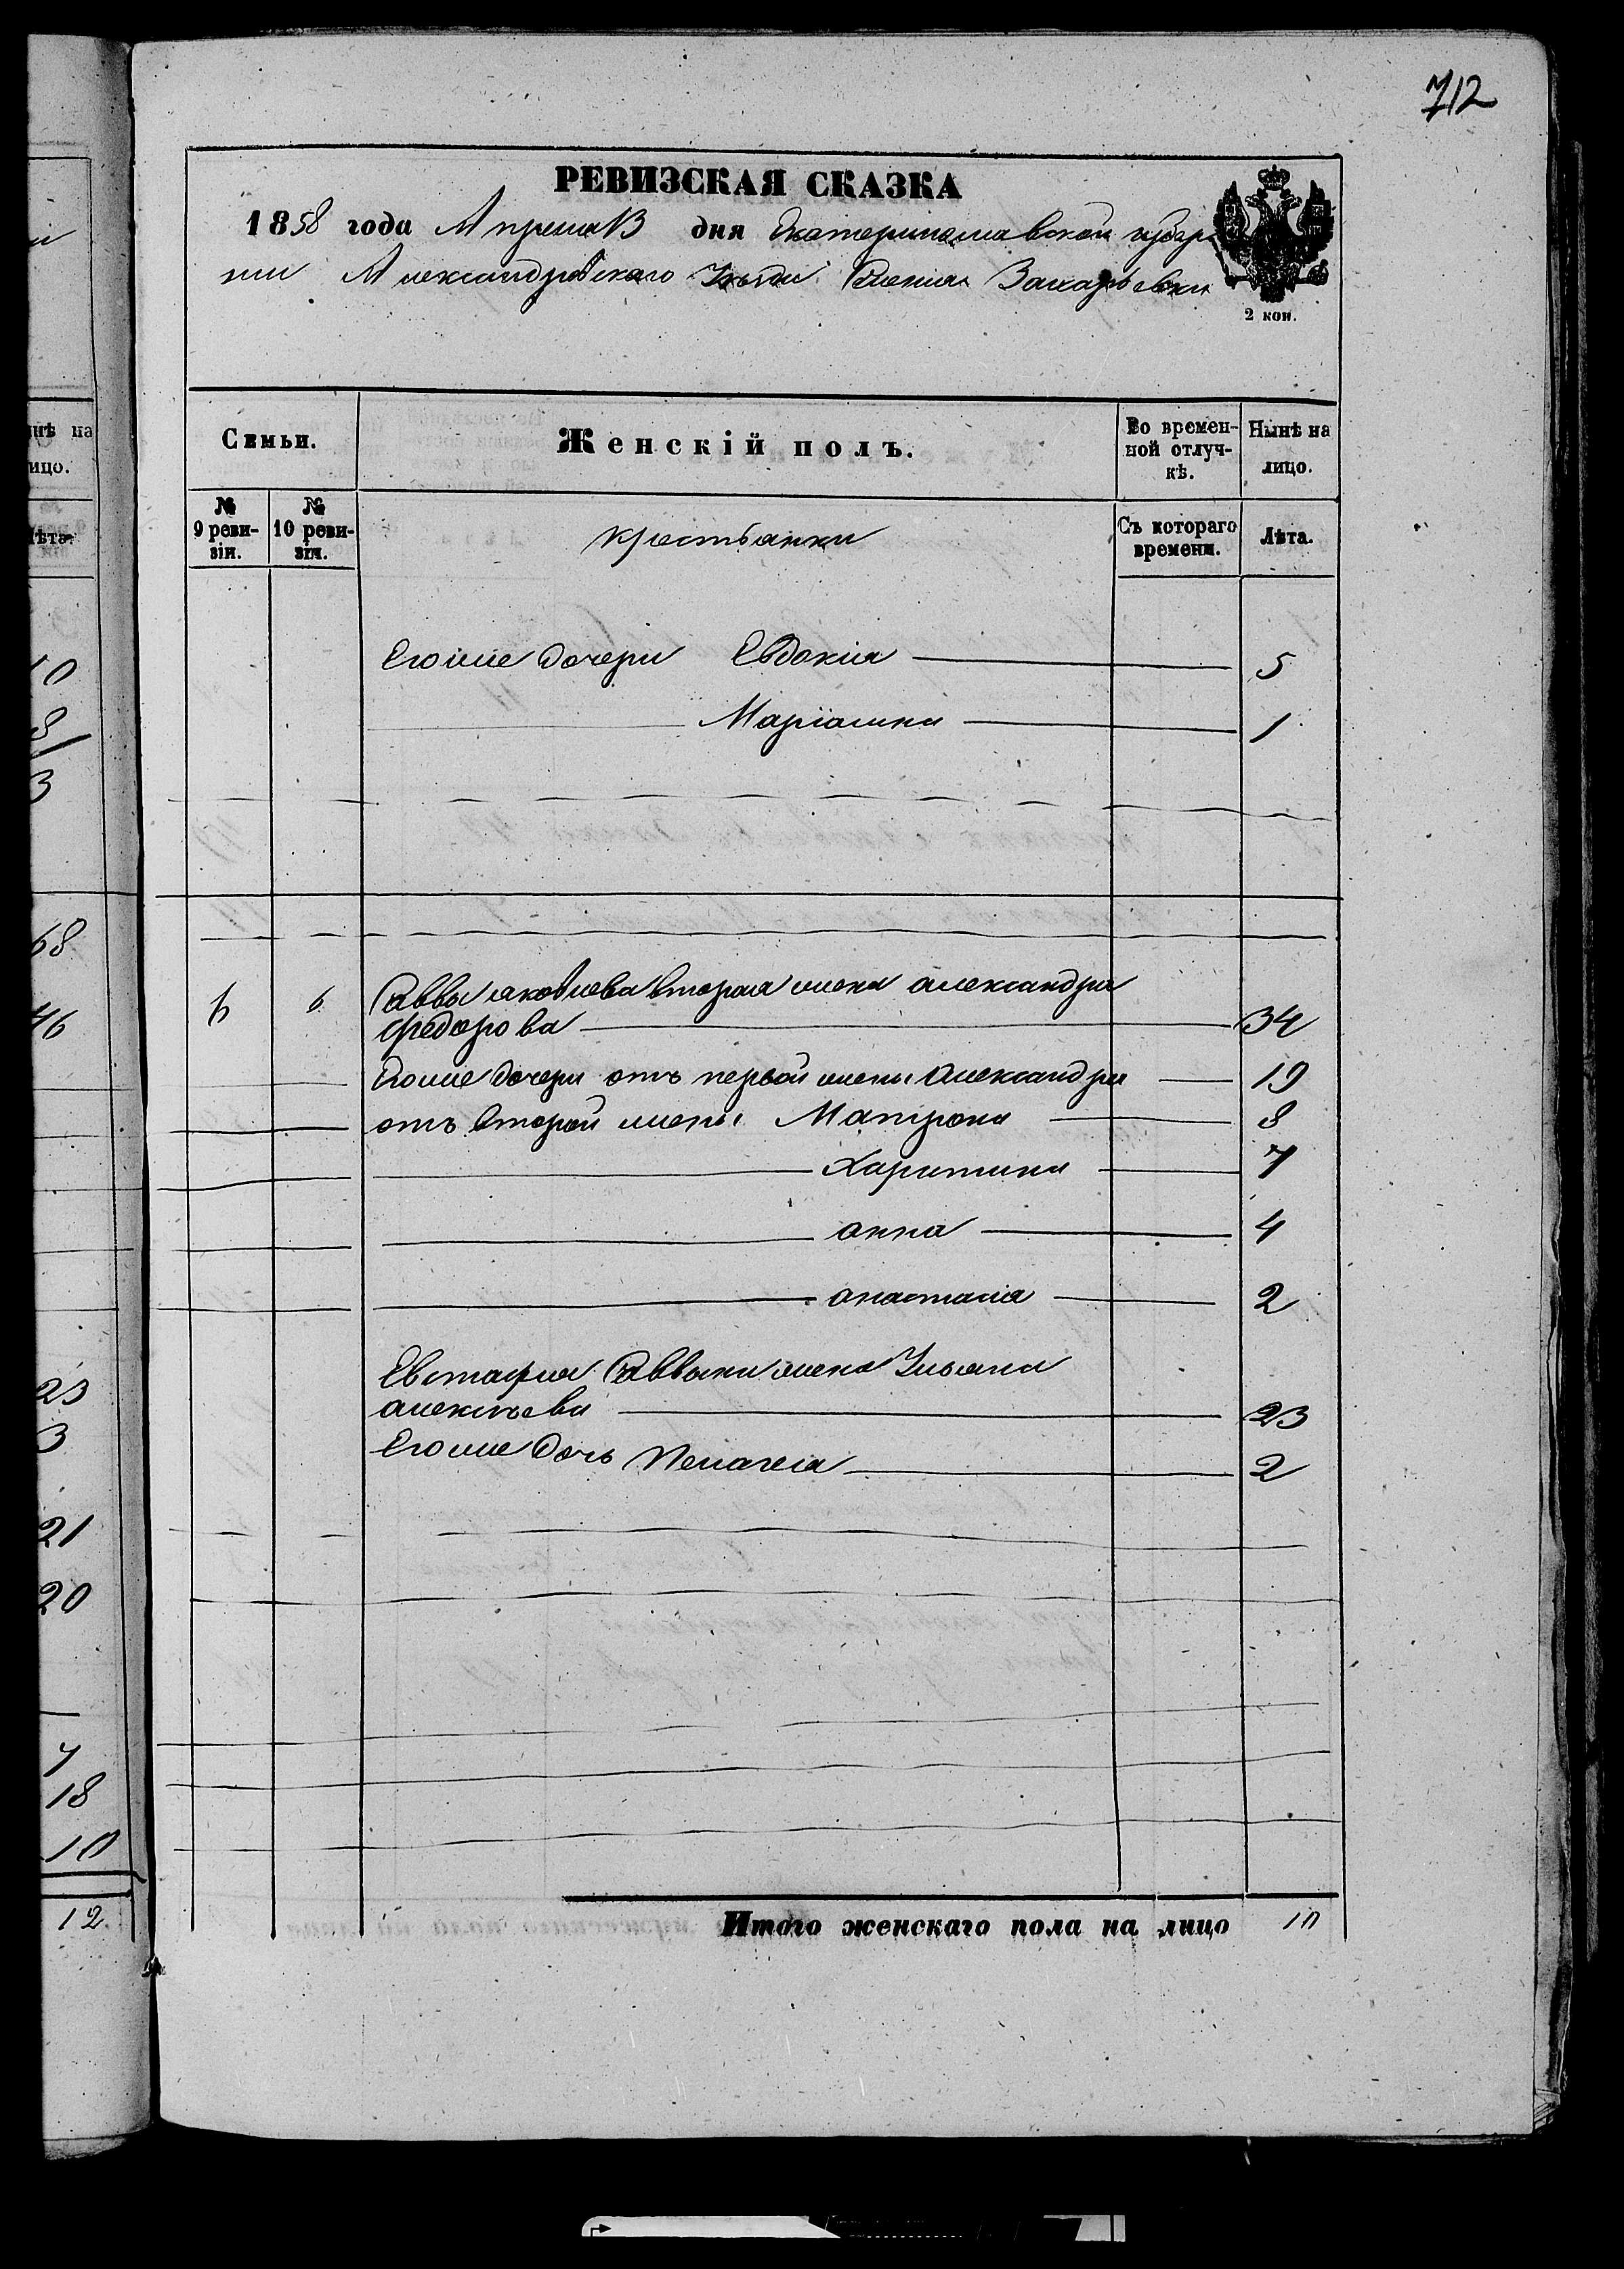 712
РЕВИЗСКАЯ СКАЗКА
1858 года Апреля 13 дня Екатеринославской губер
нии Александровскаго Уезда Селения Захарьевки
2 коп.
Семьи.
Женскій полъ.
Во времен-
ной отлуч-
кѣ.
Нынѣ на
лицо.
№
9 реви-
зіи.
№
10 реви-
зіи.
крестьянки
Съ котораго
времени.
Лѣта.
Егоже дочери Евдокия 5
Маріамна 1
6 6 Саввы яковлева вторая жена александра
федорова 34
Егоже дочери отъ первой жены Александра 19
отъ второй жены Матрона 8
Харитина 7
анна 4
анастасия 2
Евстафия Саввина жена Ульяна
алексеева 23
Егоже дочь Пелагея 2
Итого женскаго пола на лицо 10
нѣ на
ицо.
ѣта.
10
8/
3
68
46
23
3
21
20
7
18
10
12